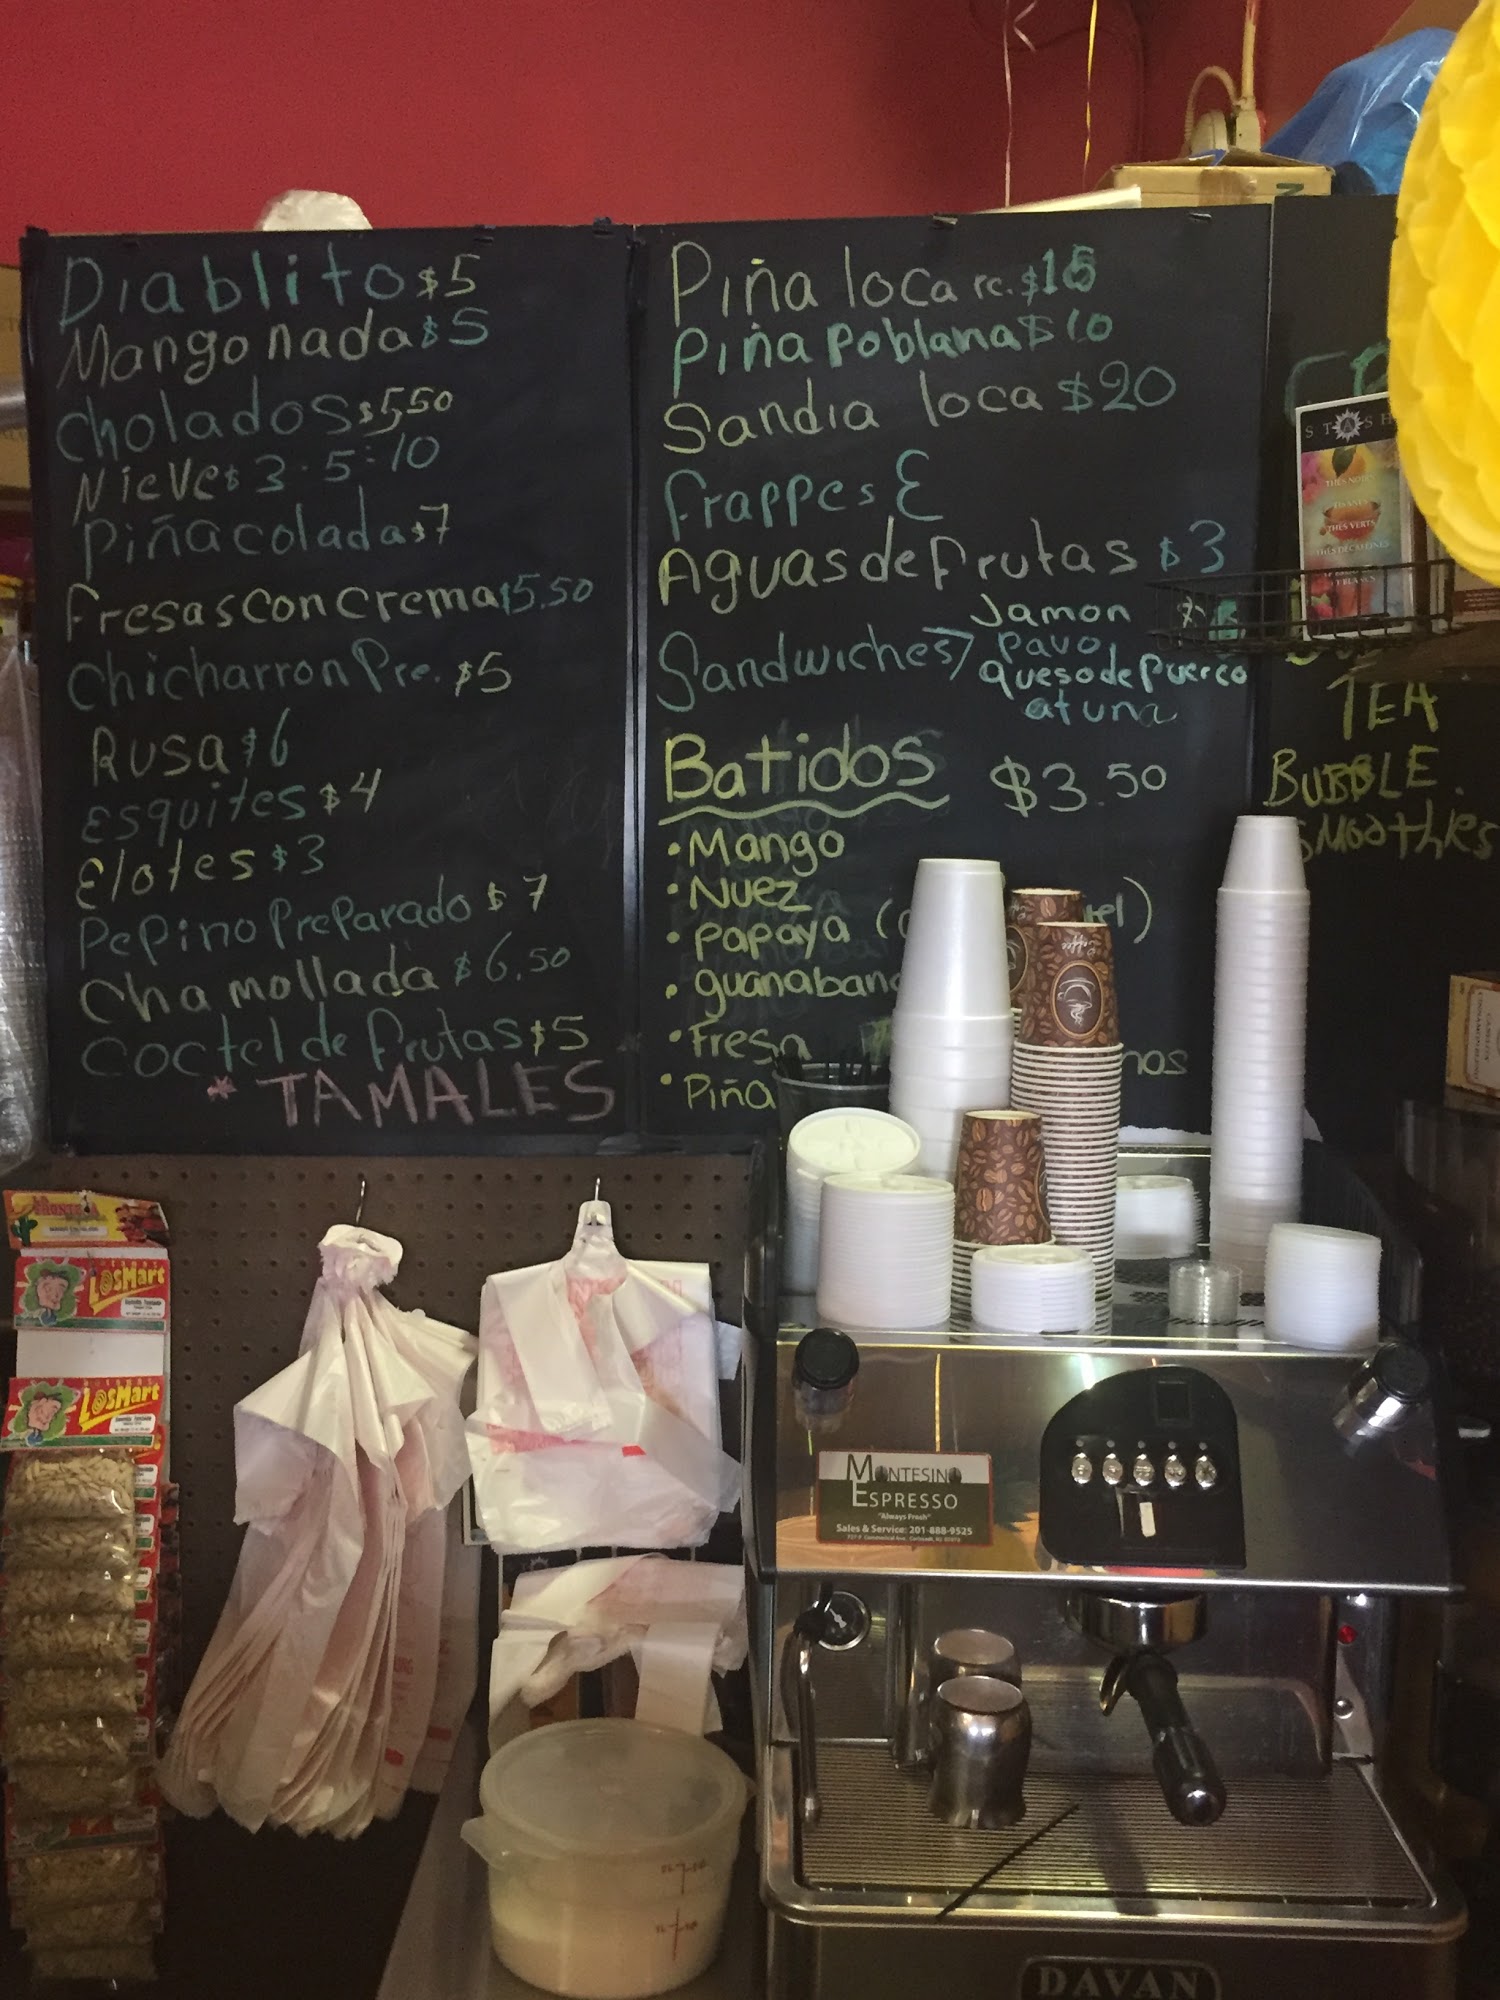 Diablito $5
Mangonada $5
Cholados $5,50
Nieve $ 3 - 5 - 10
Piña colada $7
Fresas con crema $5.50
Chicharron Pre. $5
Rusa $6
Esquites $4
Elotes $3
Pepino Preparado $7
Chamollada $6.50
Coctel de frutas $5
* TAMALES
Piña loca
Piña Poblana $10
Sandia loca $20
Frappes &
Aguas de frutas $3
Sandwiches
Jamon
pavo
queso de puerco
atuna
Batidos $3.50
• Mango
• Nuez
• Papaya
• guanabana
• Fresa
• Piña
TEA
BUBBLE
SMOOTHIES
STASH
THÉS NOIRS
THÉS VERTS
THÉS DÉCAFÉINÉS
LosMart
LosMart
Coffee
MONTESINO
ESPRESSO
"Always Fresh"
Sales & Service: 201-888-9525
DAVAN